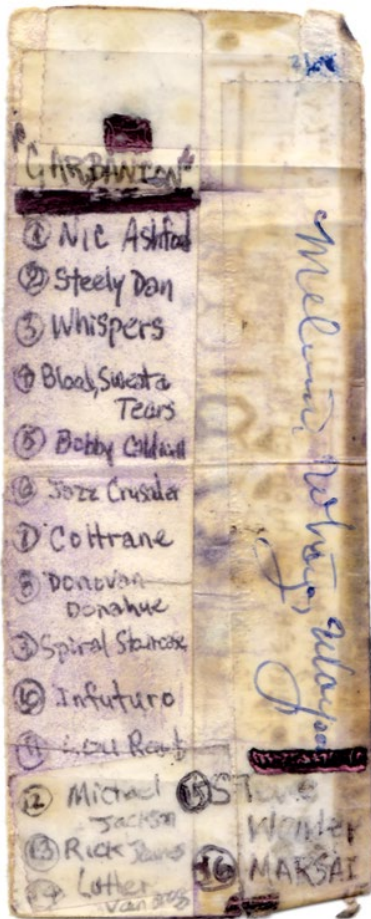 "GARBANION"
① Nic Ashford
② Steely Dan
③ Whispers
④ Blood, Sweat &
Tears
⑤ Bobby Caldwell
⑥ Jazz Crusader
⑦ Coltrane
⑧ Donovan
Donahue
⑨ Spiral Staircase
⑩ Infuturo
⑪ Lou Rawls
⑫ Michael
Jackson
⑬ Rick James
⑭ Luther
Vandross
⑮ Stevie
Wonder
⑯ MARSAI